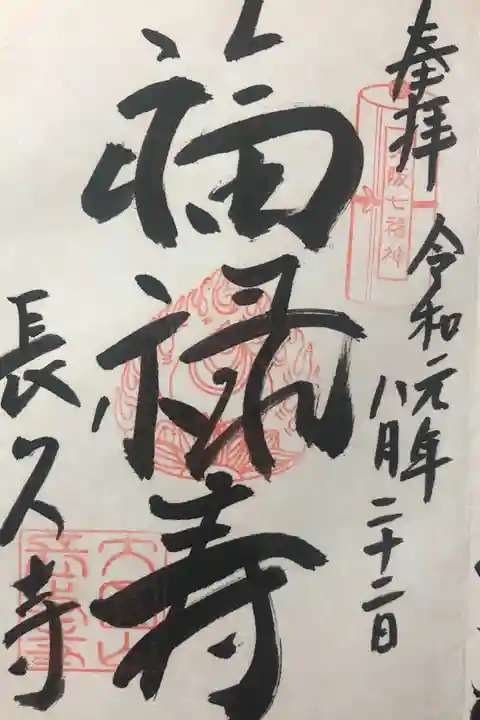 奉拝 令和元年
八月二十二日
阪七福神
福禄寿
長久寺